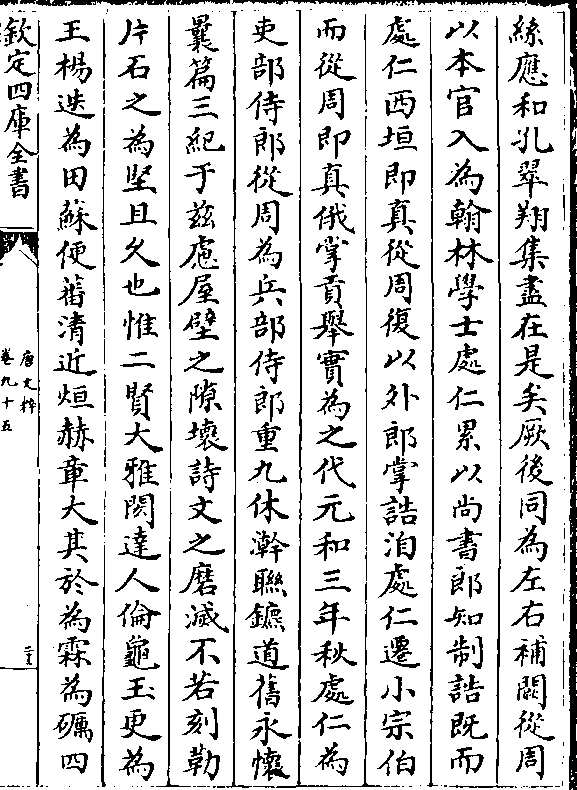 絲應和孔翠翔集盡在是矣厥後同為左右補闕從周
以本官入為翰林學士處仁累以尚書郎知制誥既而
處仁西垣即真從周復以外郎掌誥洎處仁遷小宗伯
而從周即真俄掌貢舉實為之代元和三年秋處仁為
吏部侍郎從周為兵部侍郎重九休澣聯鑣道舊永懷
曩篇三紀于兹慮屋壁之隙壞詩文之磨滅不若刻勒
片石之為堅且久也惟二賢大雅閎達人倫龜玉更為
王楊迭為田蘇便蕃清近烜赫章大其於為霖為礪四
欽定四庫全書
唐文粹
卷九十五